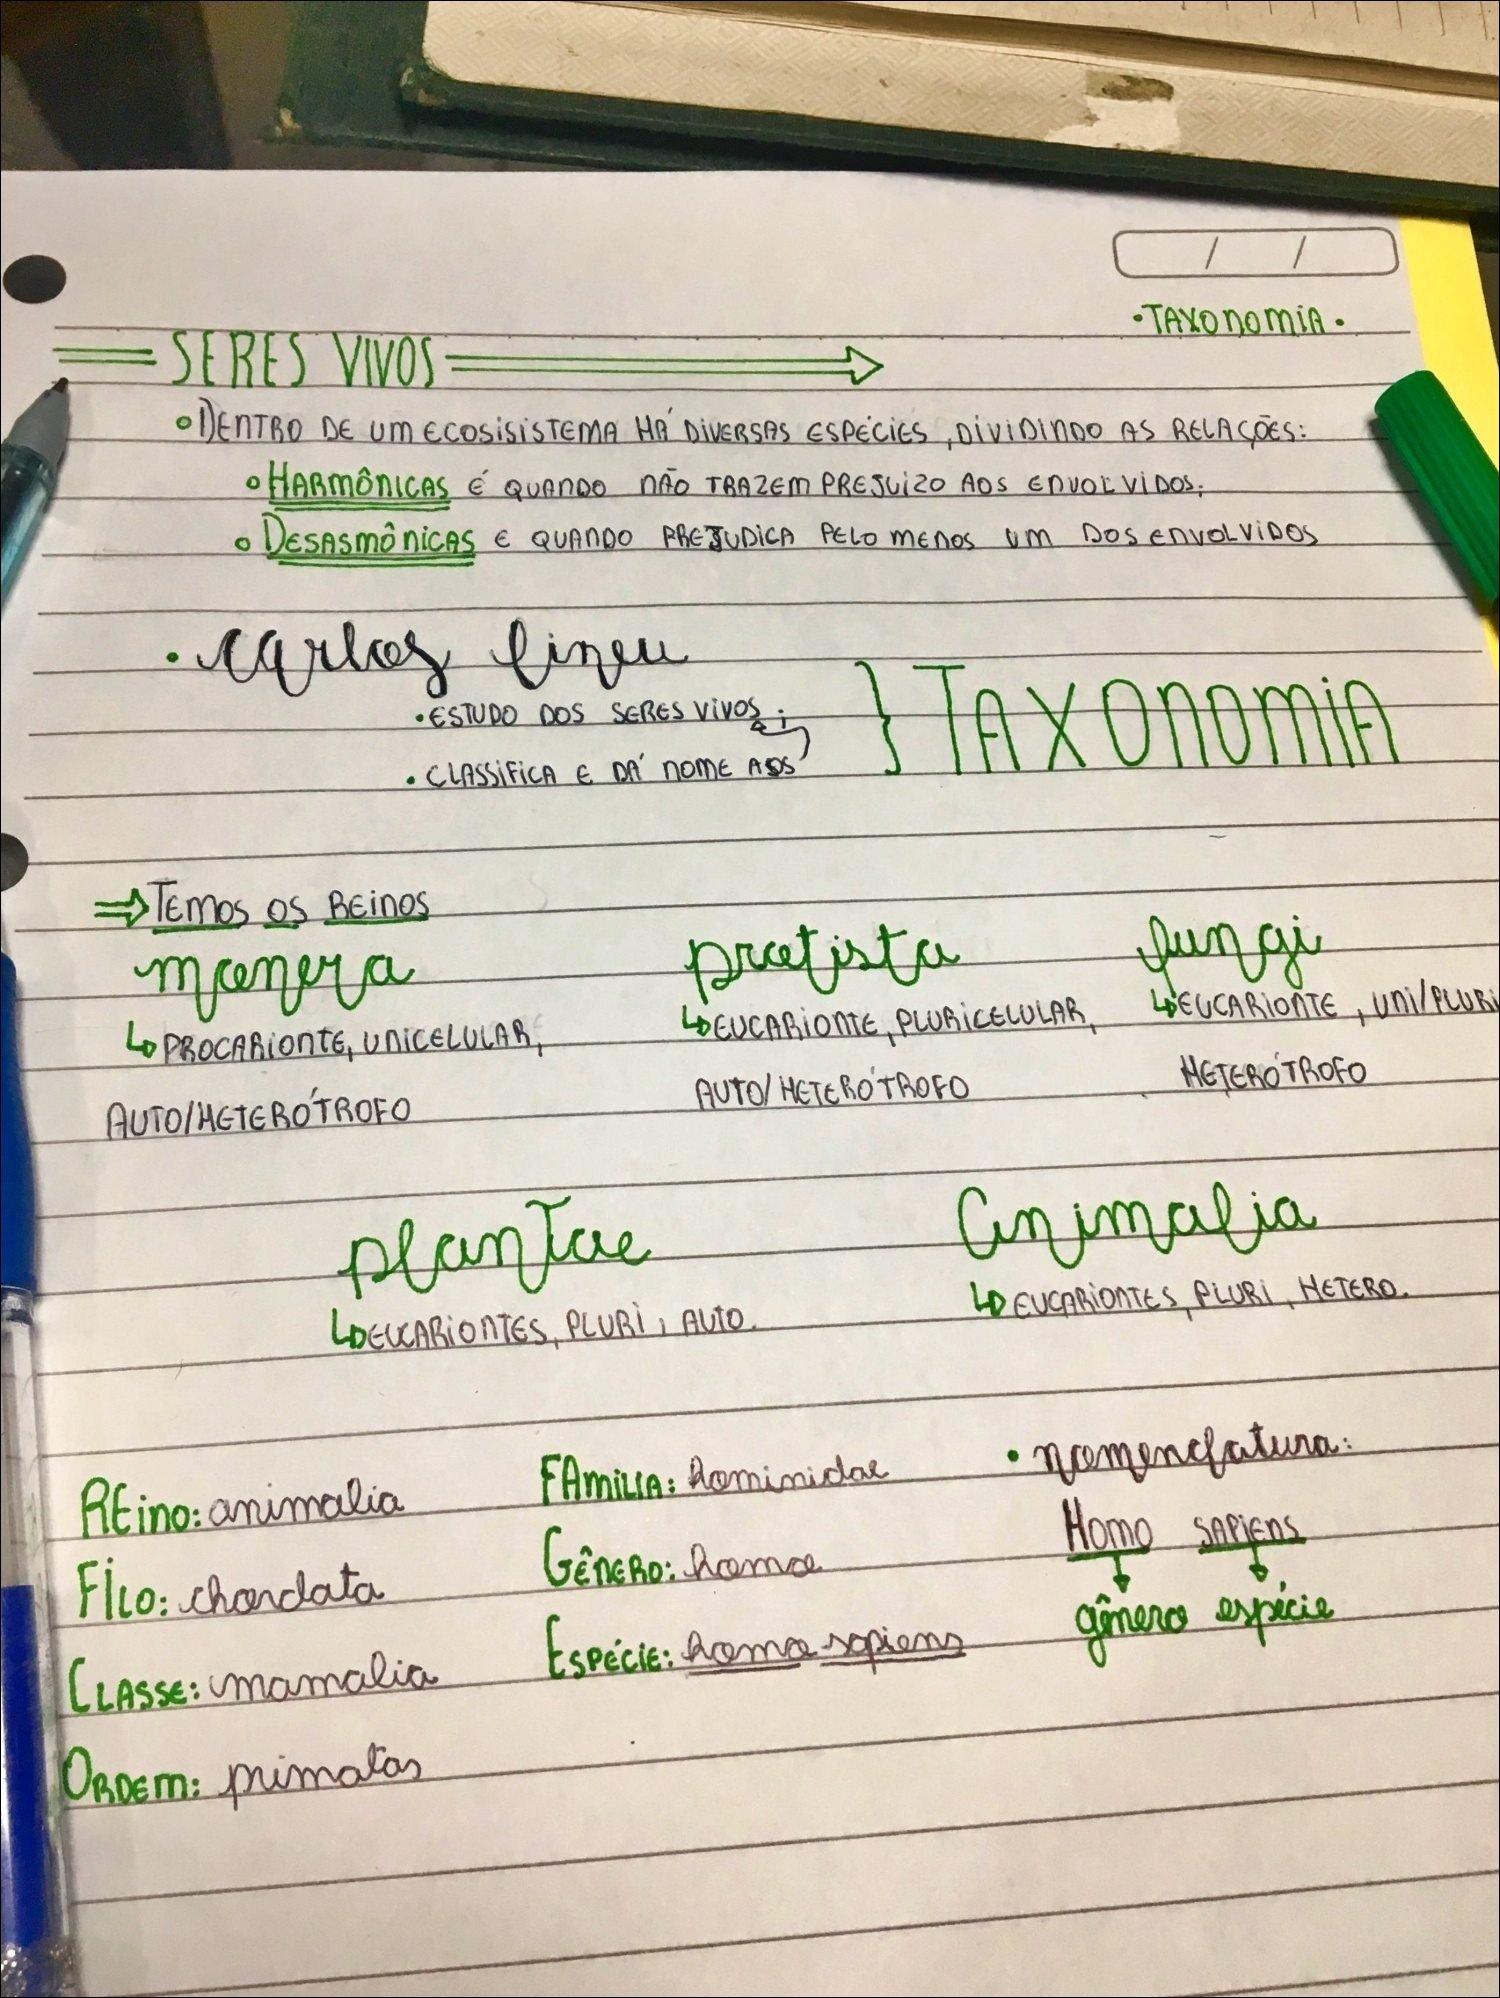 / /
•TAXONOMIA•
SERES VIVOS
DENTRO DE UM ECOSISISTEMA HÁ DIVERSAS ESPÉCIES, DIVIDINDO AS RELAÇÕES:
HARMÔNICAS É QUANDO NÃO TRAZEM PREJUIZO AOS ENVOLVIDOS;
DESASMÔNICAS E QUANDO PREJUDICA PELO MENOS UM DOS ENVOLVIDOS
• Carlos Lineu
• ESTUDO DOS SERES VIVOS;
} TAXONOMIA
• CLASSIFICA E DÁ NOME AOS
⇒ TEMOS OS REINOS
monera protista fungi
↳ PROCARIONTE, UNICELULAR, ↳ EUCARIONTE, PLURICELULAR, ↳ EUCARIONTE, UNI/PLURI
AUTO/HETERÓTROFO AUTO/HETERÓTROFO HETERÓTROFO
plantae Animalia
↳ EUCARIONTES, PLURI, AUTO. ↳ EUCARIONTES, PLURI, HETERO.
REINO: animalia FAMILIA: hominidae • nomenclatura:
FILO: chordata GÊNERO: homo HOMO SAPIENS
CLASSE: mamalia ESPÉCIE: homo sapiens gênero espécie
ORDEM: primatas